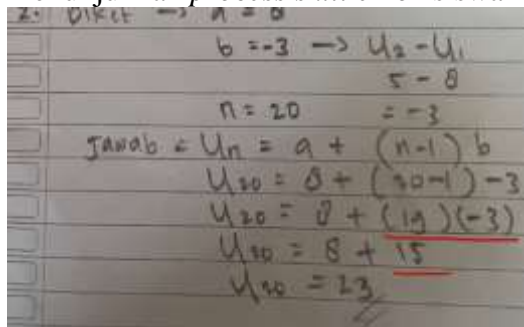 2. Diket → a = 8
b = -3 → U2 - U1
5 - 8
n = 20 = -3
Jawab = Un = a + (n-1) b
U20 = 8 + (20-1) -3
U20 = 8 + (19)(-3)
U20 = 8 + 15
U20 = 23